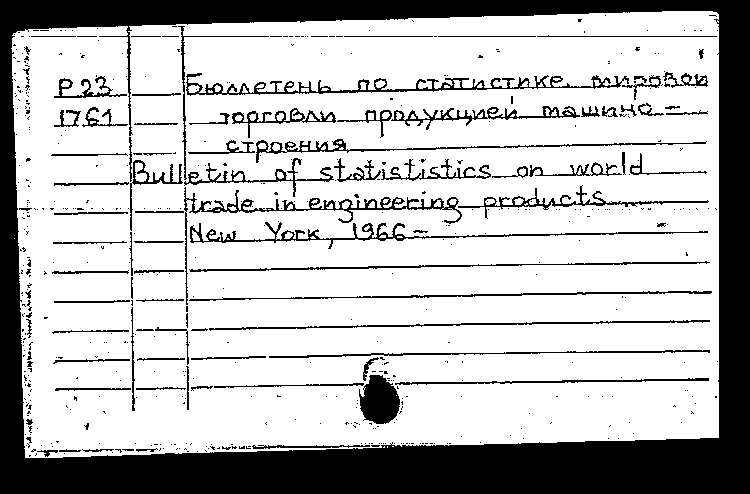 P 23 Бюллетень по статистике мировой
1761 торговли продукцией машино-
строения
Bulletin of statististics on world
trade in engineering products
New York, 1966-